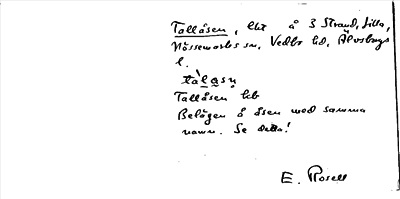 Tallåsen, lht å 3 Strand, Lilla,
Nössemarks sn, Vedbo hd, Älvsborgs
l.
tàlasn̥
Tallåsen lht
Belägen å åsen med samma
namn. Se detta!
E. Rosell